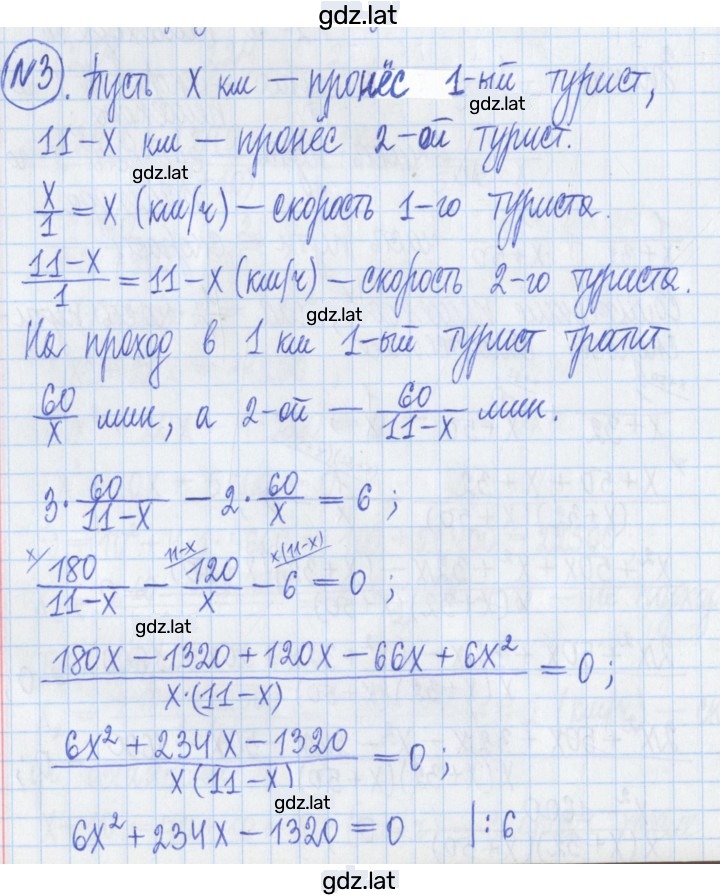 gdz.lat
№3. Пусть x км — пронёс 1-ый турист,
gdz.lat
11-x км — пронёс 2-ой турист.
gdz.lat
x/1 = x (км/ч) — скорость 1-го туриста.
(11-x)/1 = 11-x (км/ч) — скорость 2-го туриста.
gdz.lat
На проход в 1 км 1-ый турист тратит
60/x мин, а 2-ой — 60/(11-x) мин.
3·60/(11-x) - 2·60/x = 6;
x/ 11-x/ x(11-x)/
180/(11-x) - 120/x - 6 = 0;
gdz.lat
(180x - 1320 + 120x - 66x + 6x²)/(x·(11-x)) = 0;
(6x² + 234x - 1320)/(x(11-x)) = 0;
gdz.lat
6x² + 234x - 1320 = 0 |:6
gdz.lat